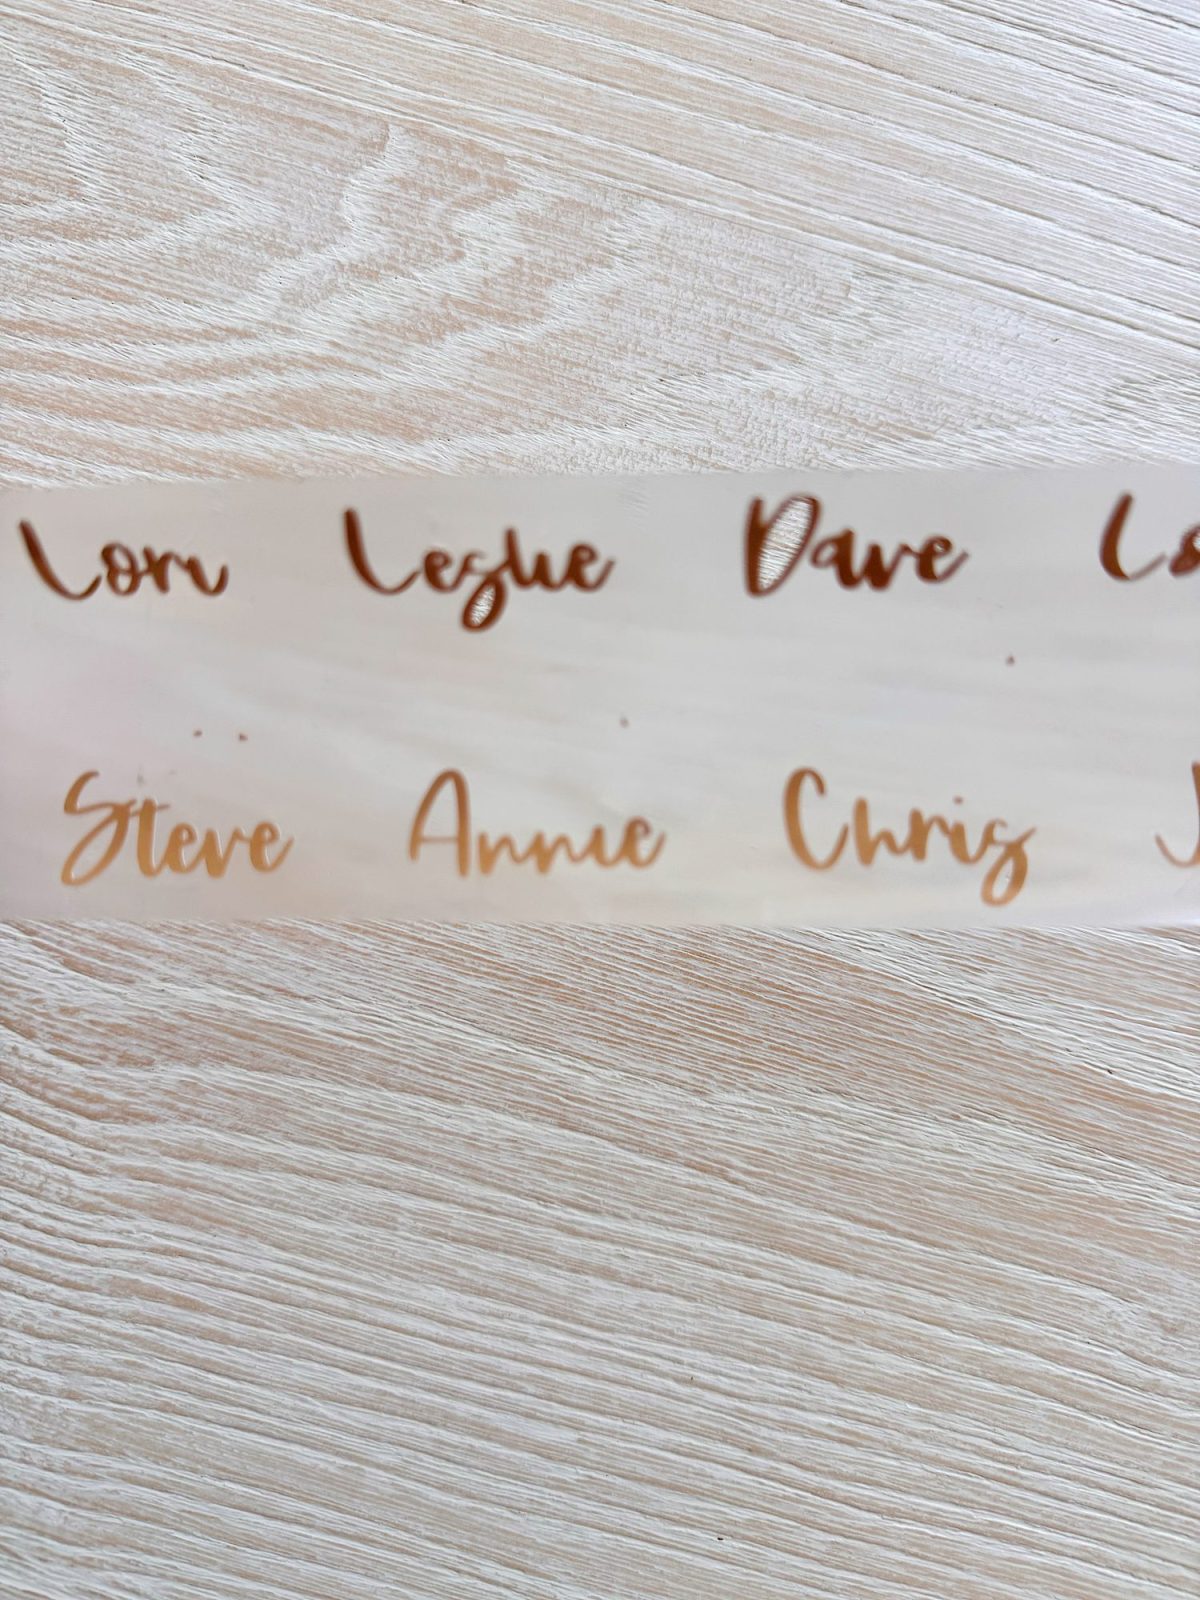 Lori Leslie Dave Lo
Steve Annie Chris